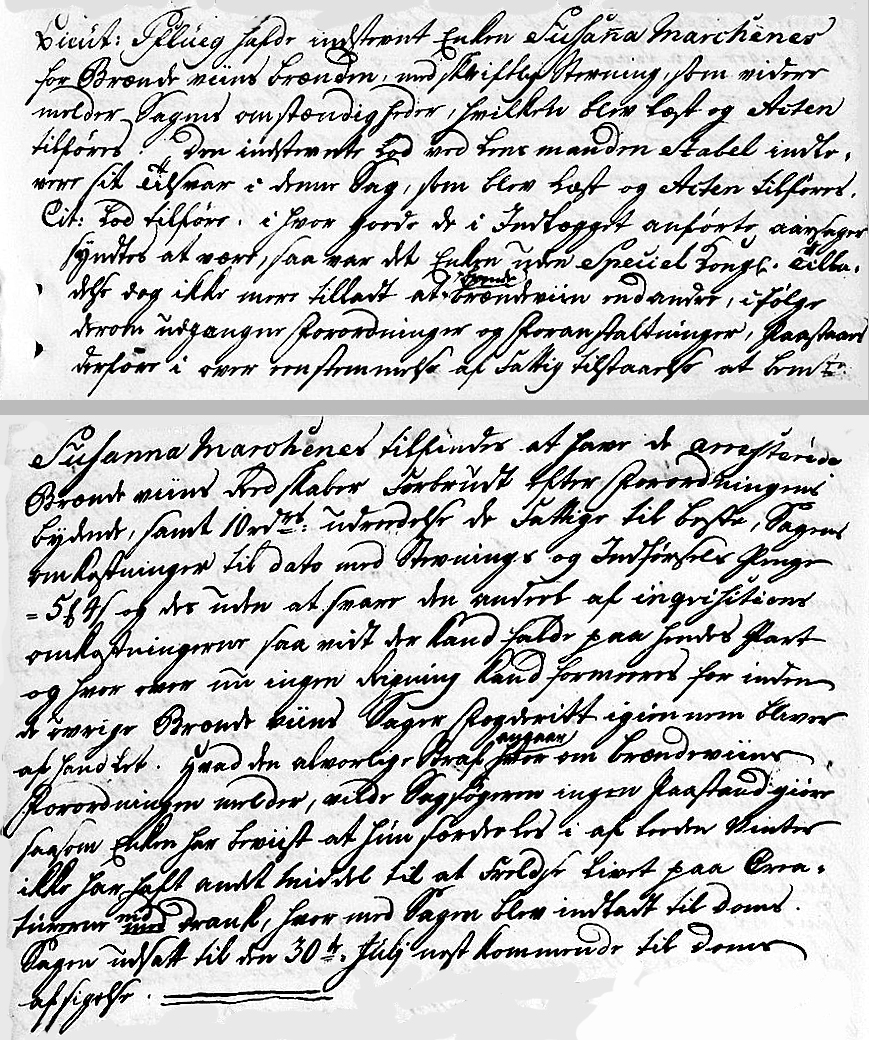 Lieut: Pflueg hafde indstevnt Enken Susanna Marchenes
for Brænde viins brænden, med skriftlig Stevning, som videre
melder Sagens omstændigheder, hvilken blev læst og Acten
tilføres. Den indstevnte lod ved Lensmanden Stabel indle-
vere sit Tilsvar i denne Sag, som blev læst og Acten tilføres.
Cit: lod tilføre. i hvor goede de i Indlægget anførte aarsager
syndtes at være, saa var det Enken uden Speciel Kongl. Tilla-
delse dog ikke mere tilladt at brænde brændeviin end andre, i følge
derom udgangne Forordninger og Foranstaltninger, Paastaaes
derfore i over eenstemmelse af Fattig tilstaaelse at bemte
Susanna Marchenes tilfindes at have de arresterede
Brænde viins Redskaber Forbrudt efter Forordningens
bydende, samt 10 rdrs udreedelse de Fattige til beste, Sagens
omkostninger til dato med Stevnings og Indførsels Penge
= 5 4 s og des uden at svare den andeel af inqvisitions
omkostningerne saa vidt der kand falde paa hendes Part
og hvor over nu ingen Reigning kand formeeres for inden
de øvrige Brænde viins Sager Fogderiet igiennem bliver
afhandlet. Hvad den alvorlige Straf angaar hvor om brændeviins
Forordningen melder, vilde Sagsøgeren ingen Paastand giøre
saasom Enken har beviist at hun særdeles i afleeden Vinter
ikke har haft andet middel til at Frelse Livet paa Crea-
turerne end med drank, hvor med Sagen blev indladt til doms.
Sagen udsatt til den 30te Julj nest kommende til doms
afsigelse.